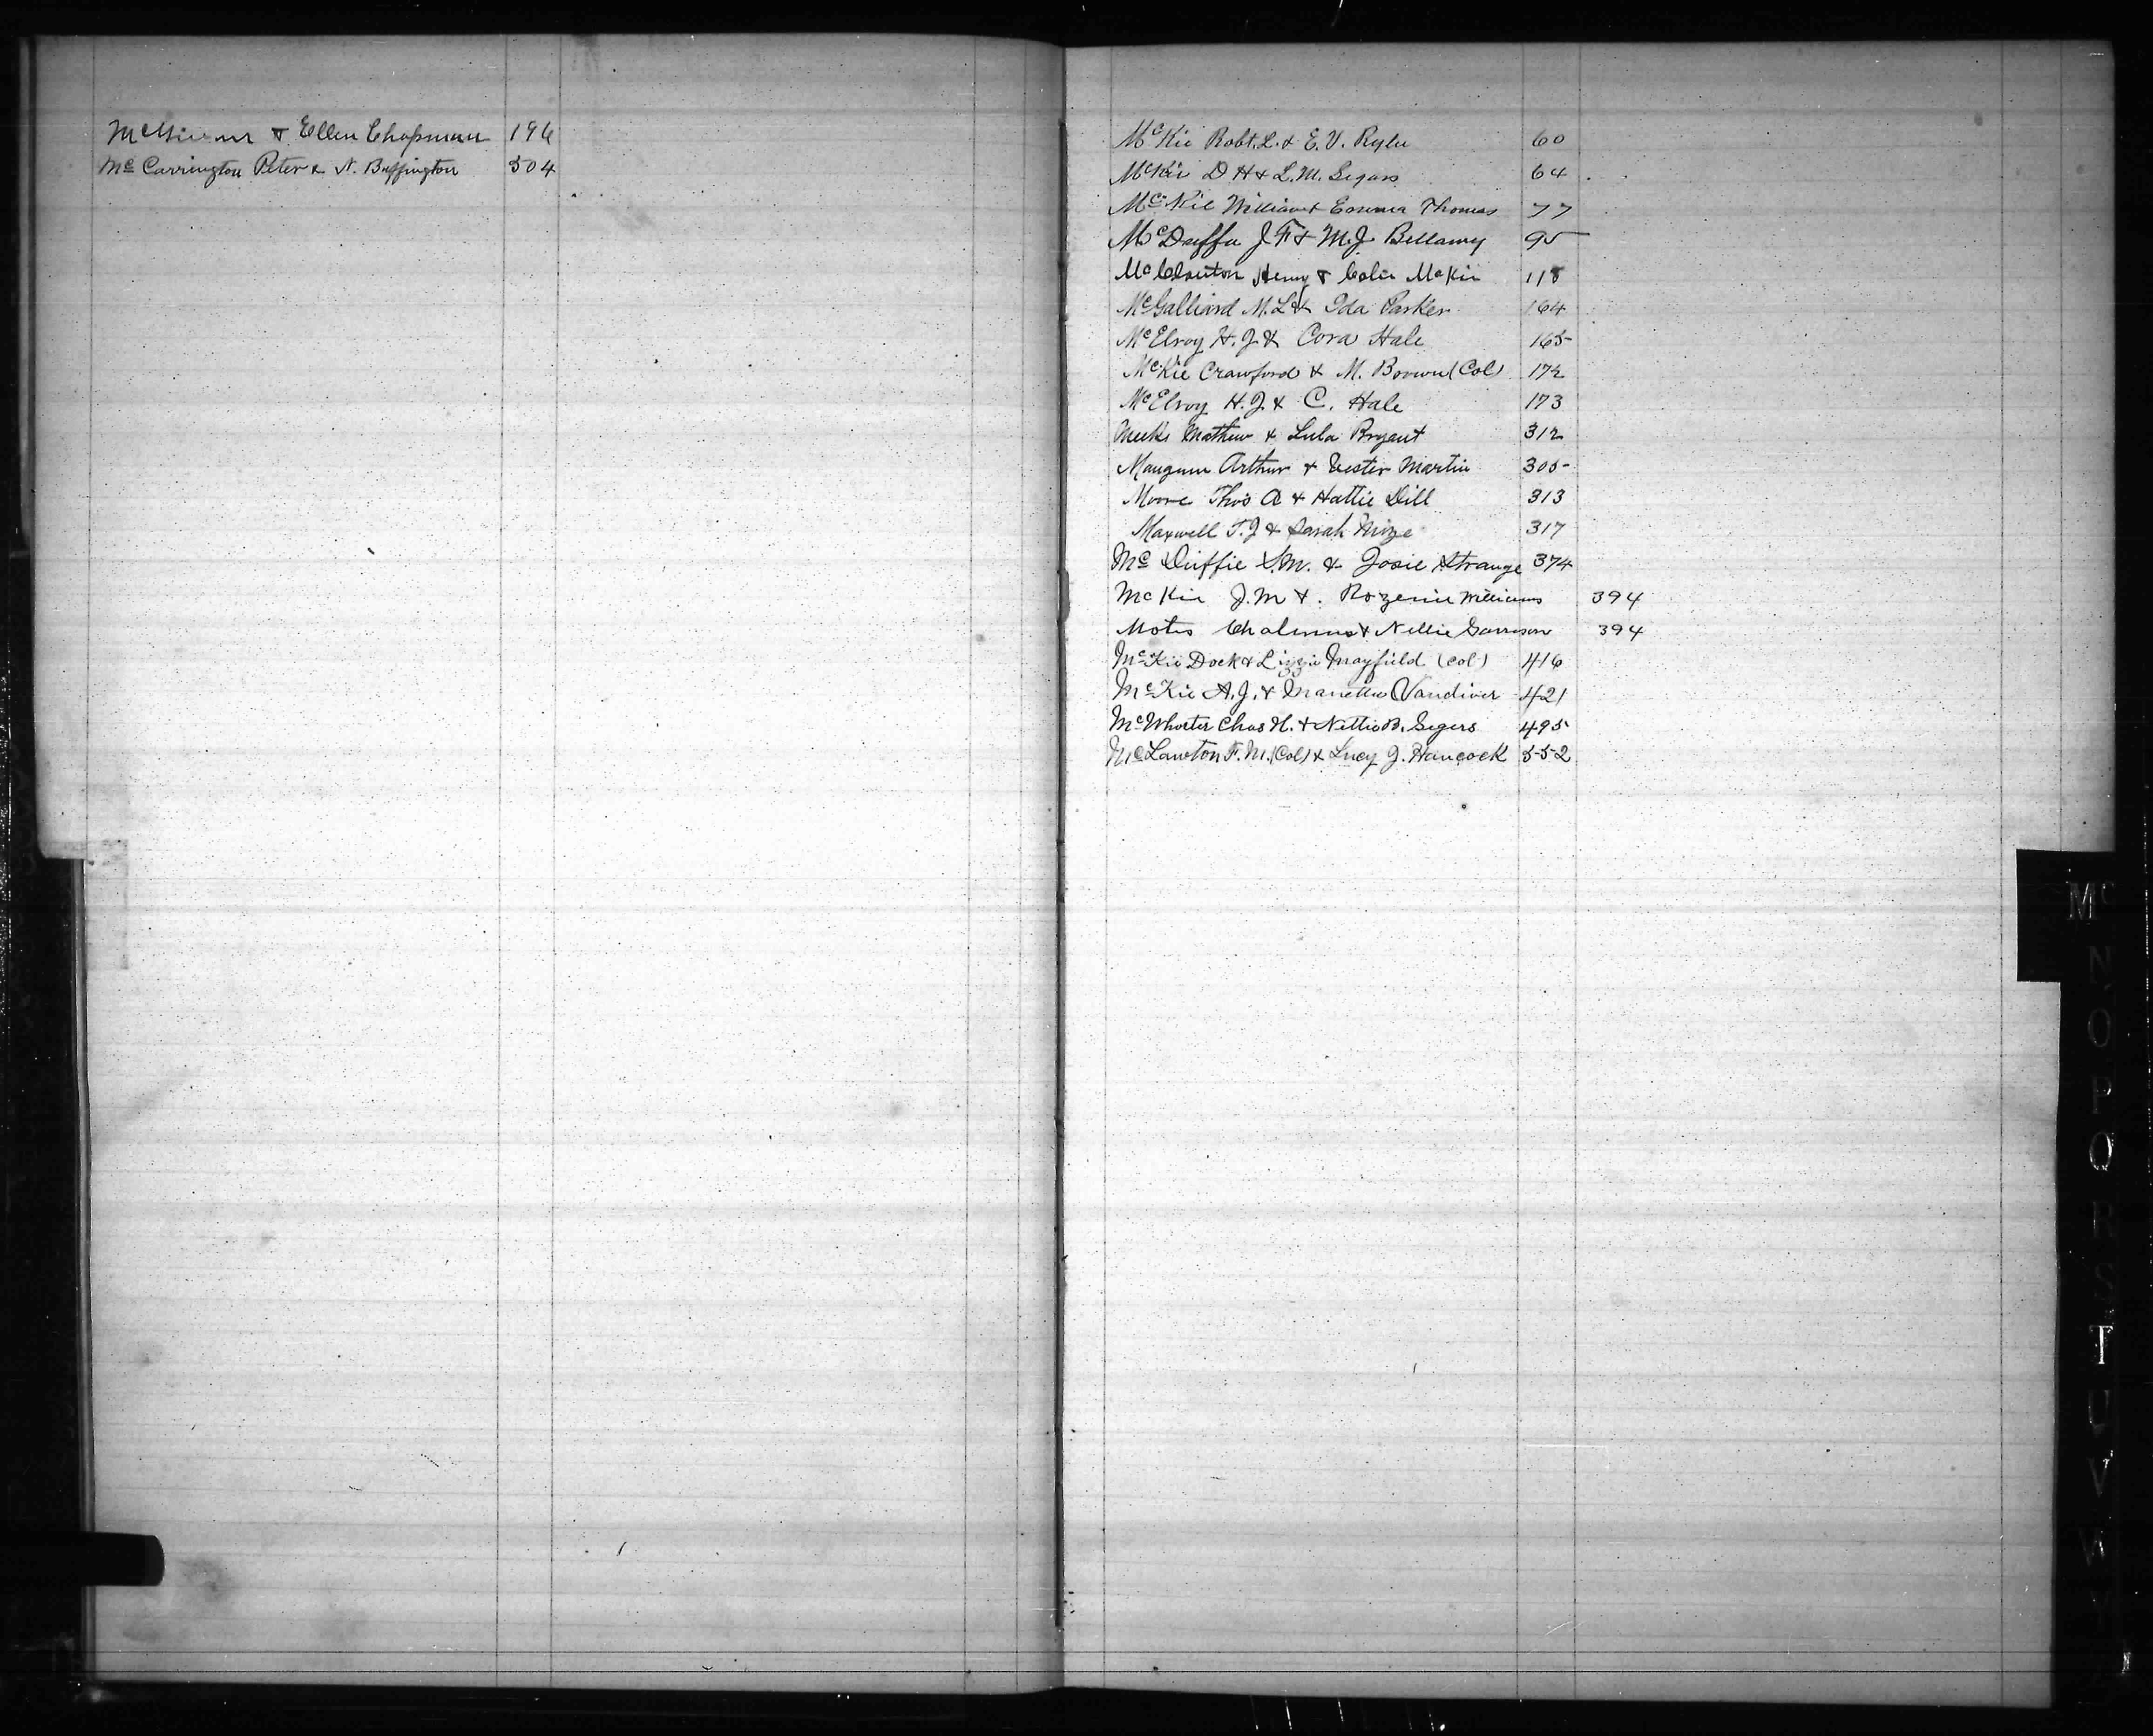 & Ellen Chapman 196
Mc Carrington Peter & N. Buffington 504
McKie Robt. L. & E. V. Ryle 60
McKie D H & L. M. Segars 64
McKie William & Emma Thomas 77
McDuffie J F & M. J. Bellamy 95
Henry & McKie 118
McGalliard M. L & Ida Parker 164
McElroy H. J. & Cora Hale 165
McKie Crawford & M. Brown (Col) 172
McElroy H. J. & C. Hale 173
Meeks Mathew & Lula Bryant 312
Mangum Arthur & Martin 305
Moore Thos A & Hattie Dill 313
Maxwell T. J & Sarah Mize 317
Mc Duffie S. M. & Josie Strange 374
McKie J. M & Williams 394
Motes Chalmus & Nellie Garrison 394
McKie Dock & Lizzie Mayfield (Col) 416
McKie A. J. & Vandiver 421
McWhorter Chas H. & Nettie B. Segers 495
McLawton F. M. (Col) & Lucy J. Hancock 552
Mc
N
O
P
Q
R
S
T
U
V
W